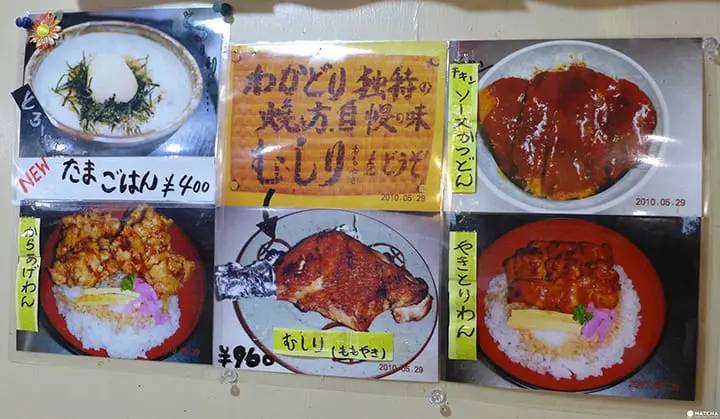 とろ
NEW
たまごはん ¥400
わかどり 独特の
焼き方、自慢の味
むしり ももやき もどうぞ
2010.05.29
チキン
ソースかつどん
2010.05.29
からあげわん
¥960
むしり (ももやき)
2010.05.29
やきとりわん
2010.05.29
MATCHA